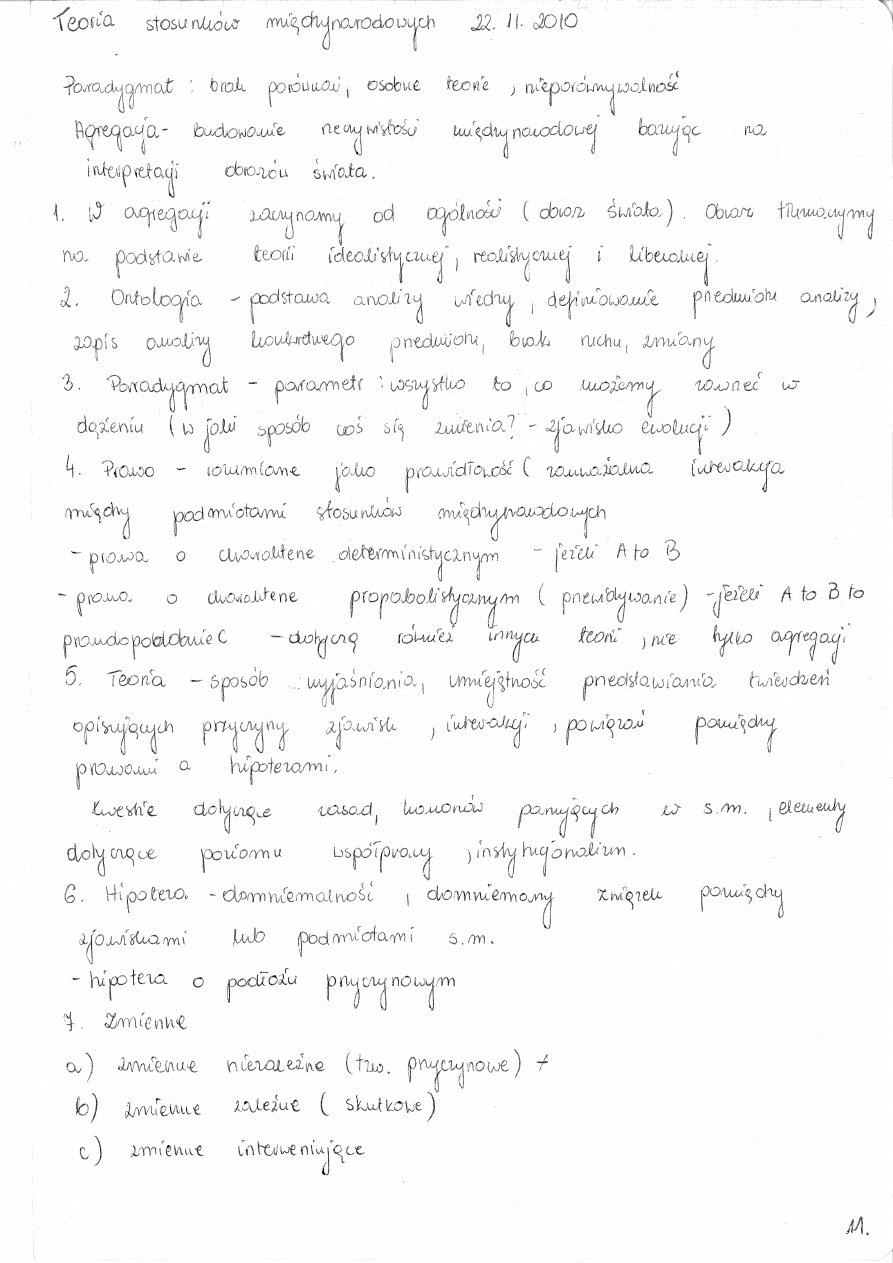 Teoria stosunków międzynarodowych 22. 11. 2010
Paradygmat : brak porównań, osobne teorie , nieporównywalność
Agregacja - budowanie rzeczywistości międzynarodowej bazując na
interpretacji obrazów świata.
1. W agregacji zaczynamy od ogólności ( obraz świata ) . Obraz tłumaczymy
na podstawie teorii idealistycznej, realistycznej i liberalnej.
2. Ontologia - podstawa analizy wiedzy , definiowanie przedmiotu analizy ,
zapis analizy konkretnego przedmiotu, brak ruchu, zmiany
3. Paradygmat - parametr : wszystko to , co możemy zawrzeć w
dążeniu ( w jaki sposób coś się zmienia? - zjawisko ewolucji )
4. Prawo - rozumiane jako prawidłowość ( zauważalna interakcja
między podmiotami stosunków międzynarodowych
- prawa o charakterze deterministycznym - jeżeli A to B
- prawa o charakterze propabolistycznym ( przewidywanie ) - jeżeli A to B to
prawdopodobnie C - dotyczą również innych teorii , nie tylko agregacji
5. Teoria - sposób wyjaśniania, umiejętność przedstawiania twierdzeń
opisujących przyczyny zjawisk , interakcji , powiązań pomiędzy
prawami a hipotezami.
Kwestie dotyczące zasad, kanonów panujących w s.m. , elementy
dotyczące poziomu współpracy , instytucjonalizm.
6. Hipoteza - domniemalność , domniemany związek pomiędzy
zjawiskami lub podmiotami s.m.
- hipoteza o podłożu przyczynowym
7. Zmienne
a) zmienne niezależne ( tzw. przyczynowe ) +
b) zmienne zależne ( skutkowe )
c) zmienne interweniujące
11.